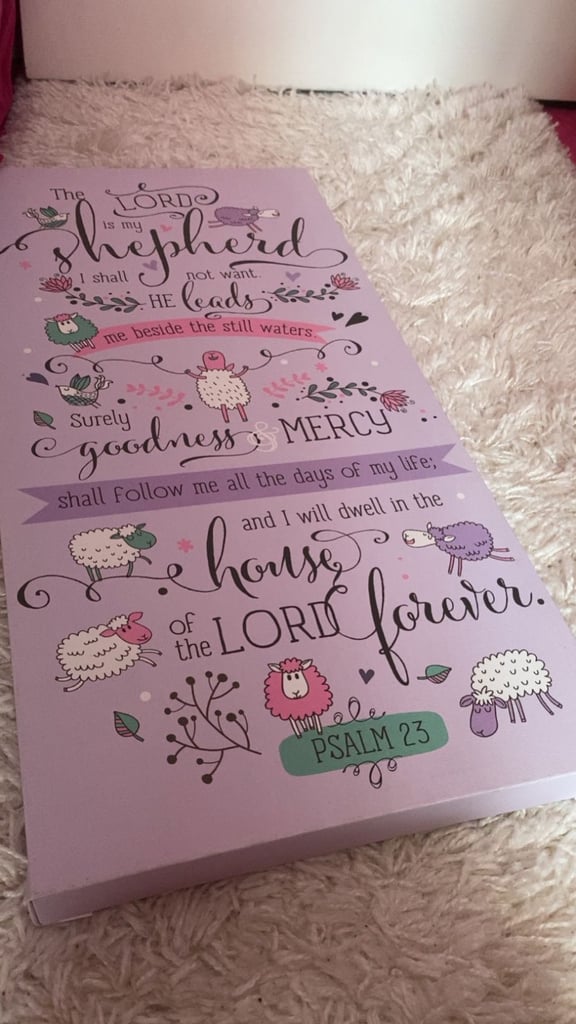 The LORD
is my
shepherd
I shall not want.
HE leads
me beside the still waters.
Surely
goodness & MERCY
shall follow me all the days of my life;
and I will dwell in the
house
of the LORD forever.
PSALM 23